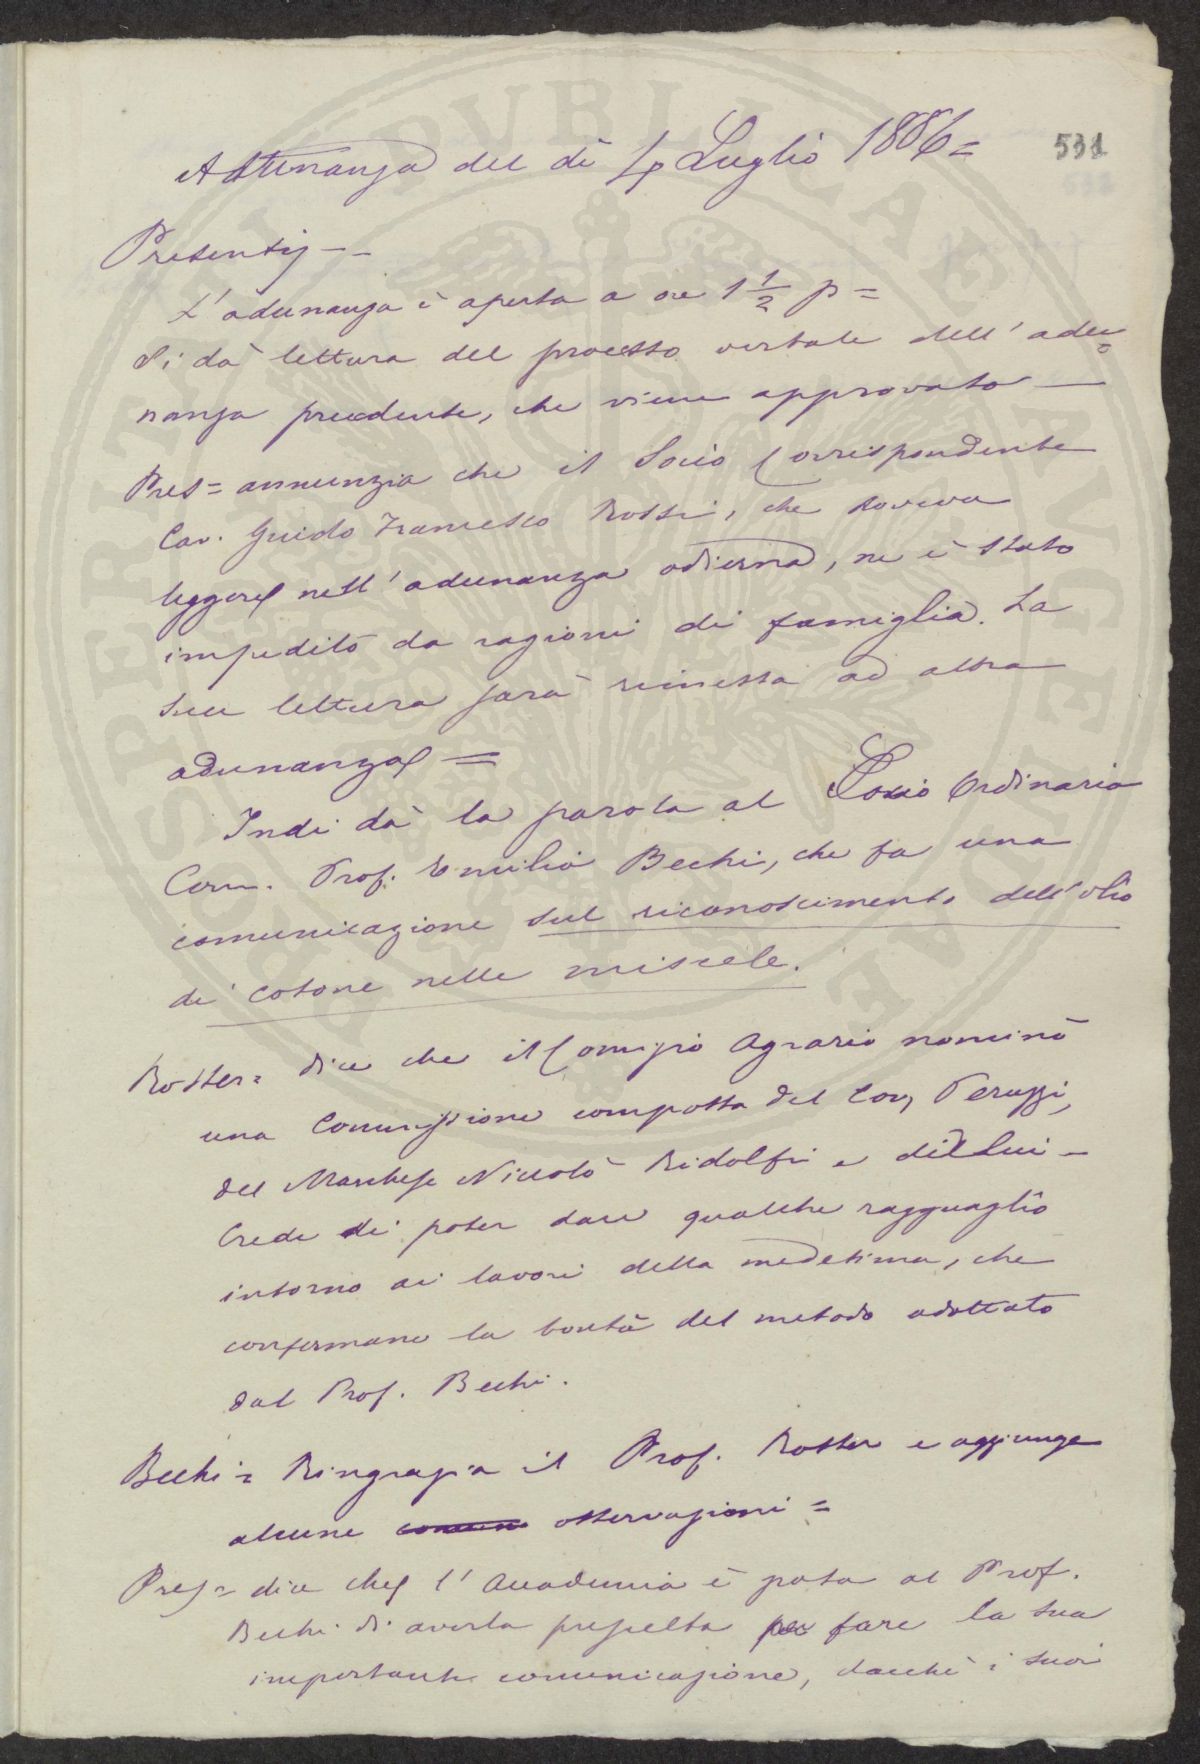 Adunanza del dì 4 Luglio 1886=
531
Presenti --
L'adunanza è aperta a ore 1 1/2 p=
Si dà lettura del processo verbale dell'adu=
nanza precedente, che viene approvato —
Pres= annunzia che il Socio Corrispondente
Cav. Guido Francesco Rossi, che doveva
leggere nell'adunanza odierna, ne è stato
impedito da ragioni di famiglia. La
sua lettura sarà rimessa ad altra
adunanza =
Indi dà la parola al Socio Ordinario
Com. Prof. Emilio Bechi, che fa una
comunicazione sul riconoscimento dell'olio
di cotone nelle miscele.
Roster= dice che il Comizio Agrario nominò
una Commissione composta del Com, Peruzzi,
del Marchese Niccolò Ridolfi e di Lui -
Crede di poter dare qualche ragguaglio
intorno ai lavori della medesima, che
confermano la bontà del metodo adottato
dal Prof. Bechi.
Bechi= Ringrazia il Prof. Roster e aggiunge
alcune osservazioni =
Pres= dice che l'Accademia è grata al Prof.
Bechi di averla prescelta per fare la sua
importante comunicazione, dacchè i suoi
PROSPERITATI PUBLICAE AUGENDAE